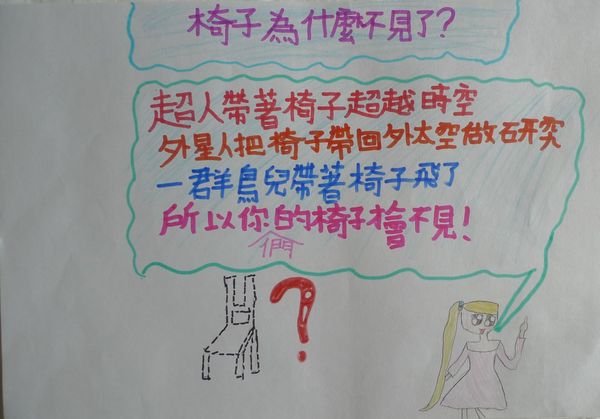 椅子為什麼不見了?
超人帶著椅子超越時空
外星人把椅子帶回外太空做研究
一群鳥兒帶著椅子飛了
所以你的椅子會不見!
們
?